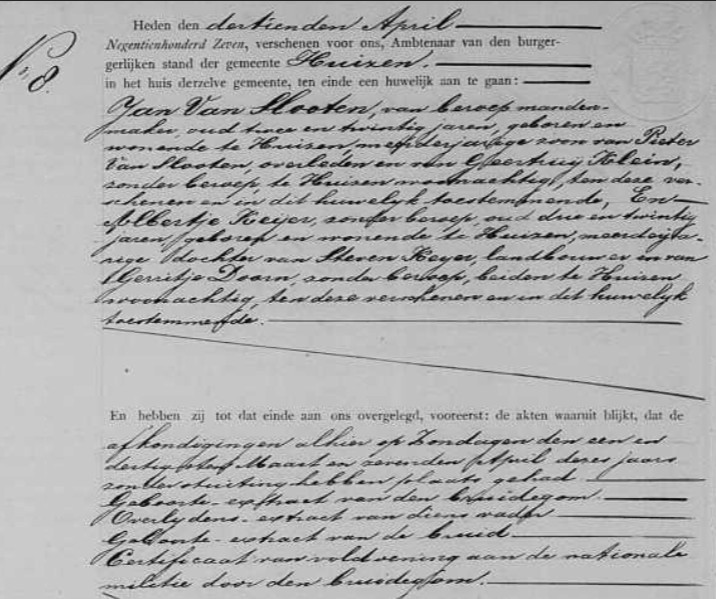 No. 8.
Heden den dertienden April
Negentienhonderd Zeven, verschenen voor ons, Ambtenaar van den burger-
gerlijken stand der gemeente Huizen.
in het huis derzelve gemeente, ten einde een huwelijk aan te gaan:
Jan Van Slooten, van beroep manden-
maker, oud twee en twintig jaren, geboren en
wonende te Huizen, meerderjarige zoon van Pieter
Van Slooten, overleden en van Geertruy Klein,
zonder beroep, te Huizen woonachtig, ten deze ver-
schenen en in dit huwelyk toestemmende, En
Albertje Keijer, zonder beroep, oud drie en twintig
jaren, geboren en wonende te Huizen, meerderja-
rige dochter van Steven Keyer, landbouwer en van
Gerritje Doorn, zonder beroep, beiden te Huizen
woonachtig, ten deze verschenen en in dit huwelyk
toestemmende.
En hebben zij tot dat einde aan ons overgelegd, vooreerst: de akten waaruit blijkt, dat de
afkondigingen alhier op Zondagen den een en
dertigsten Maart en zevenden April dezes jaars
zonder stuiting hebben plaats gehad.
Geboorte-extract van den bruidegom.
Overlydens-extract van diens vader
Geboorte-extract van de bruid.
Certificaat van voldoening aan de nationale
militie door den bruidegom.